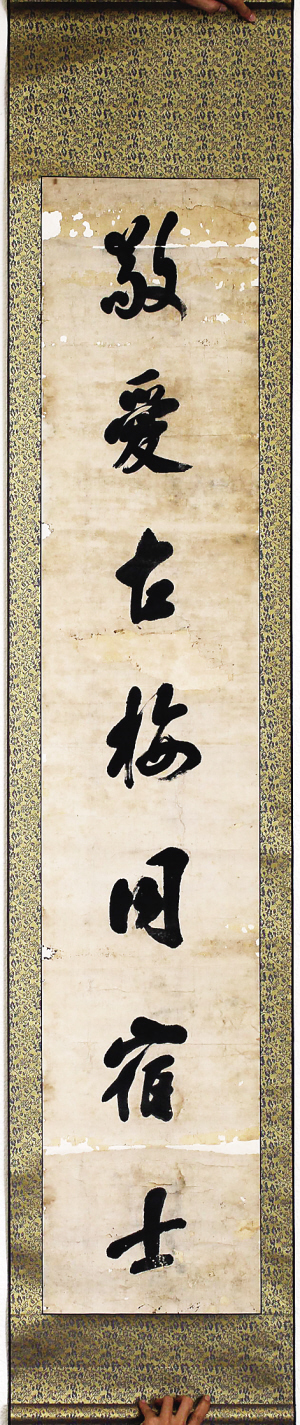 敬愛古梅同宿士